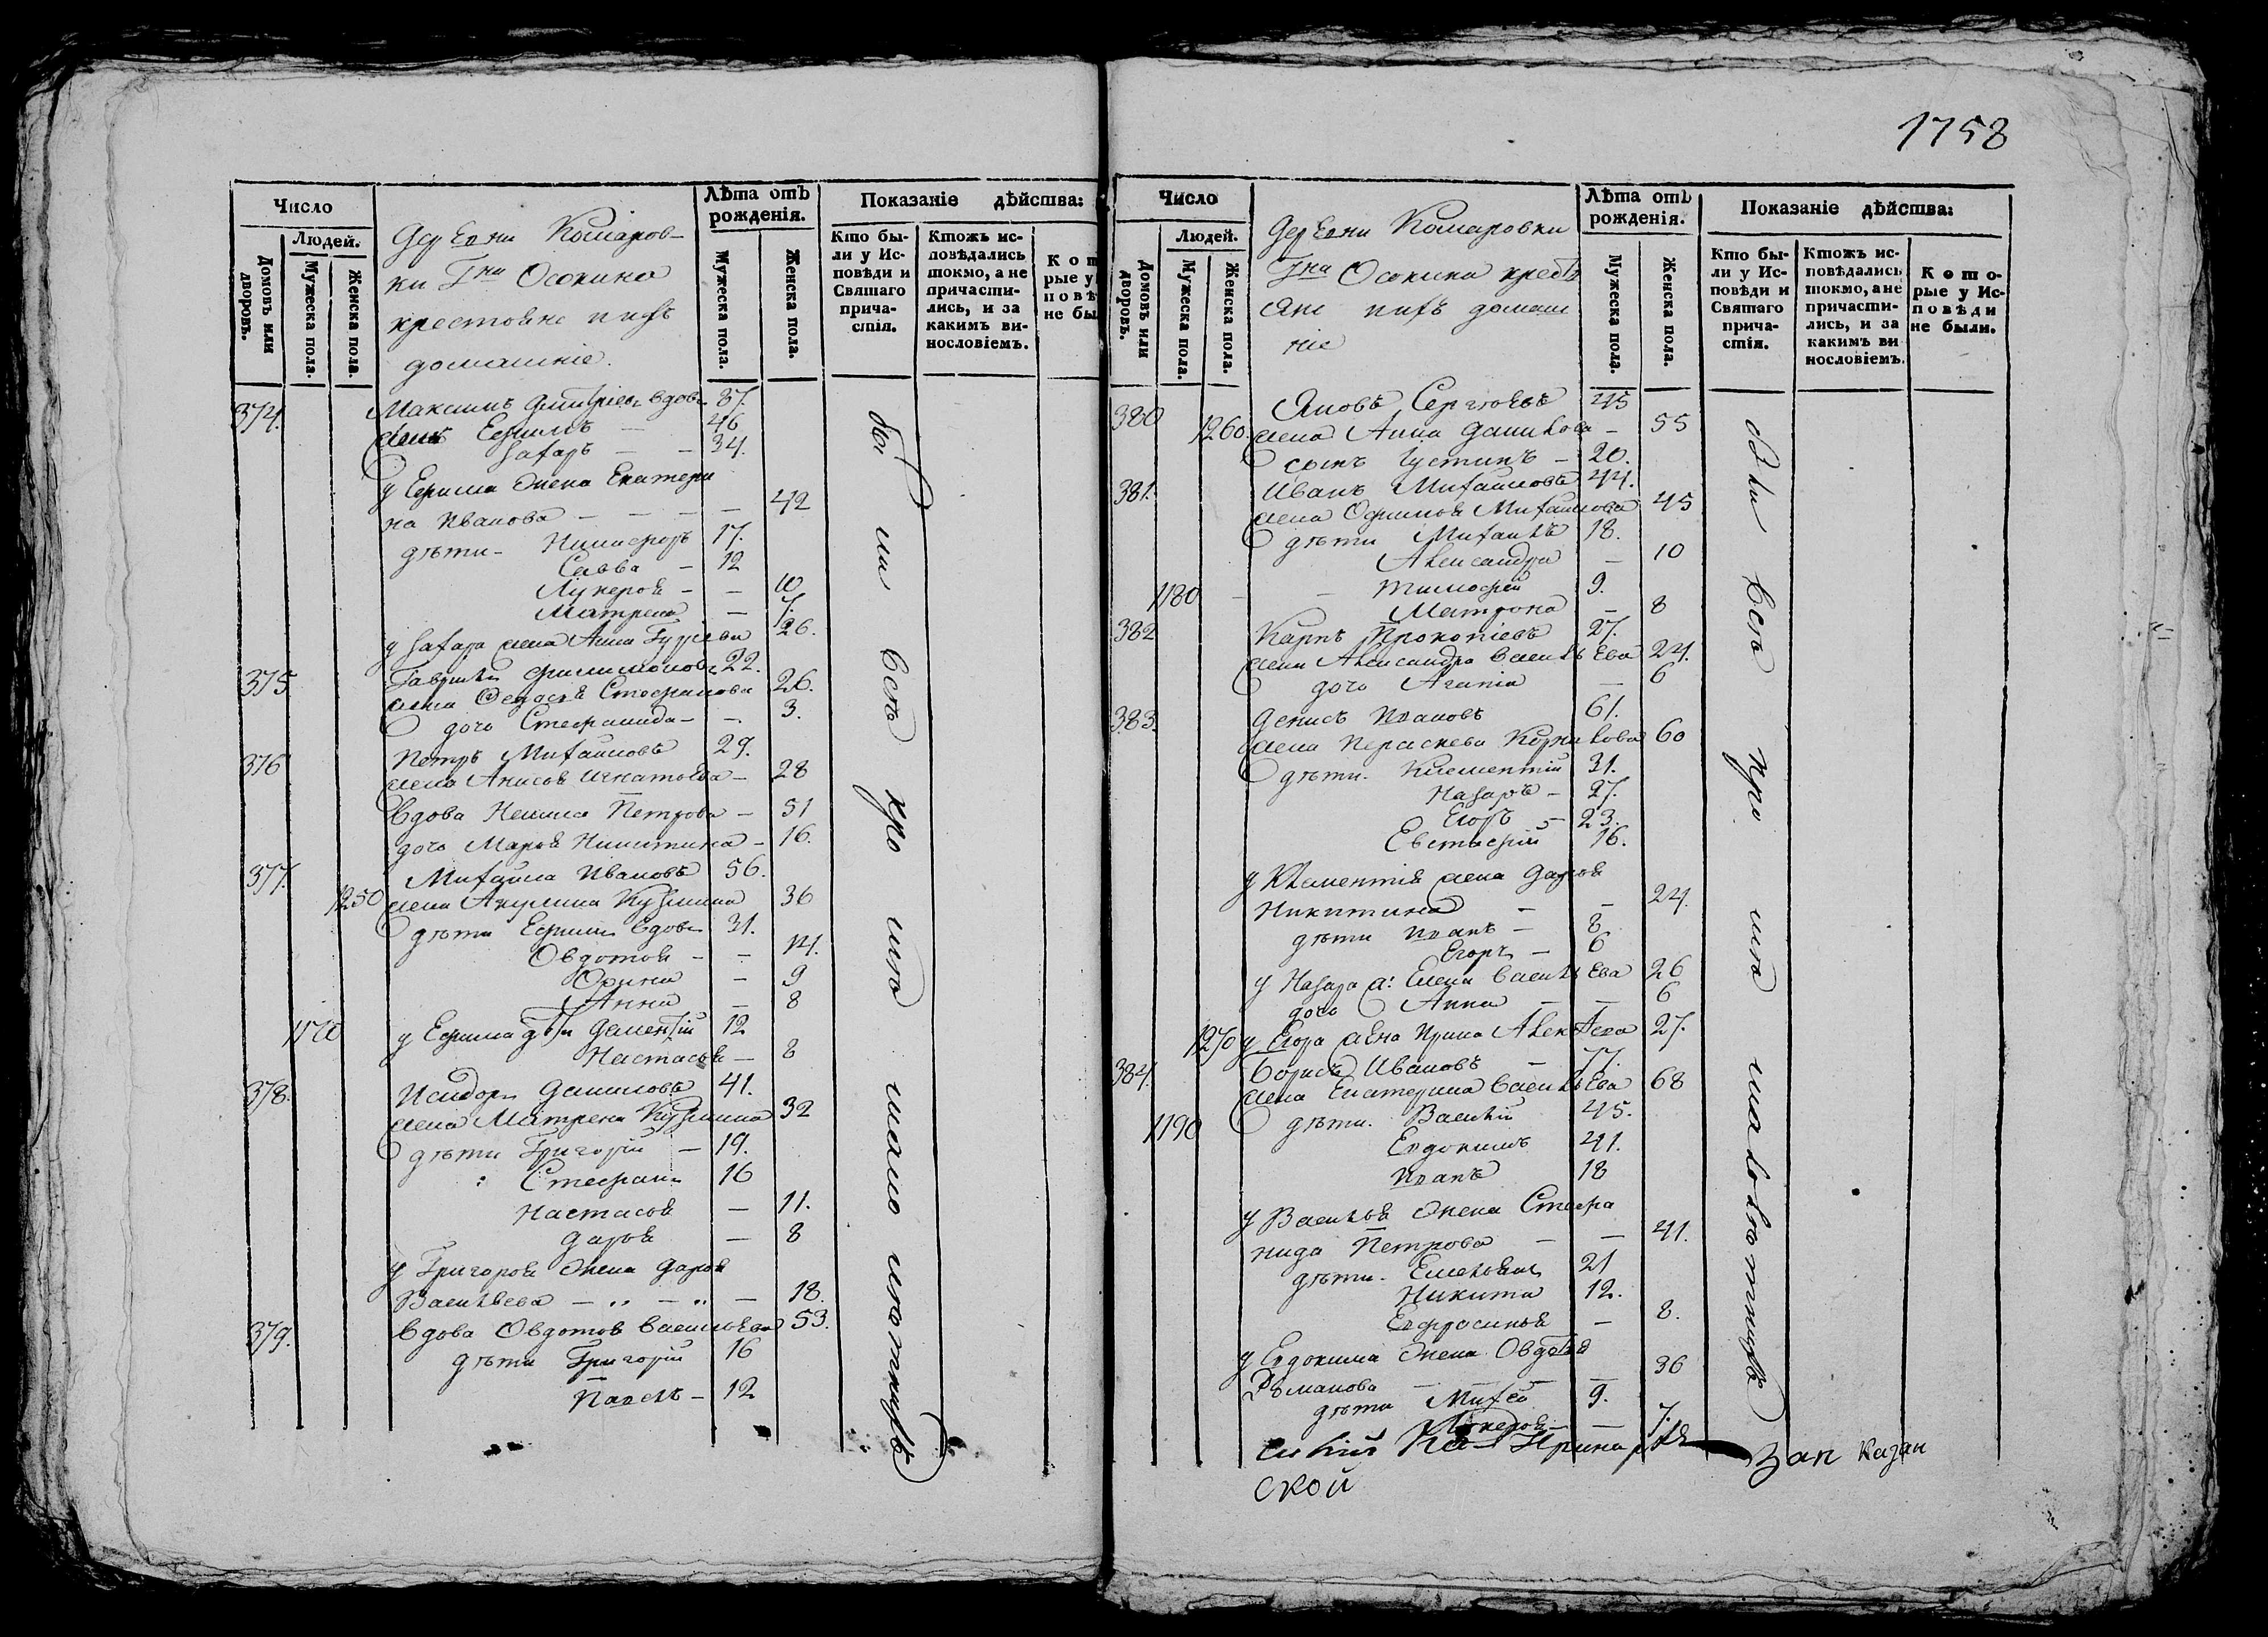 Число
Людей.
Домовъ или дворовъ.
Мужеска пола.
Женска пола.
Деревни Комаров-
ки Гна Осокина
крестьяне ихъ
домашніе.
Лѣта отъ рожденія.
Мужеска пола.
Женска пола.
Показаніе дѣйства:
Кто бы-
ли у Ис-
повѣди и
Святаго
прича-
стія.
Ктожъ ис-
повѣдались
токмо, а не
причасти-
лись, и за
какимъ ви-
нословіемъ.
Кот
рые у
повѣ
не бы
374. Максимъ Дмитріевъ вдовъ 87.
Ефимъ — 46
Захаръ — — 34.
у Ефима жена Екатери
на Иванова — — — — 42
дѣти — Никифоръ 17.
Савва — 12
Лукерья — — 10
Матрена — 7.
у Захара жена Анна Гурьева 26.
375 Гаврилъ Филимоновъ 22.
жена Федосья Стефанова 26.
дочь Стефанида — — 3.
376 Петръ Михайловъ 29.
жена Анисья Игнатьева — 28
Вдова Петрова — 51
дочь Марья Никитина — 16.
377. Михайла Ивановъ 56.
1250 жена Акулина Кузмина 36
дѣти Ефимъ вдовъ 31.
Овдотья — — 14.
Орина — 9
Анна — 8
1170 у Ефима дѣти Дементій 12
Настасья — 8
378. Исидоръ Даниловъ 41.
жена Матрена Кузмина 32
дѣти Григорій — 19.
Стефанъ 16
Настасья — 11.
Дарья — 8
у Григорья жена Дарья
Васильева — „ — „ — 18.
379. Вдова Овдотья Васильева 53.
дѣти Григорій 16
Павелъ — 12
1758
Число
Людей.
Домовъ или дворовъ.
Мужеска пола.
Женска пола.
Деревни Комаровки
Гна Осокина кресть
яне ихъ домаш
ніе
Лѣта отъ рожденія.
Мужеска пола.
Женска пола.
Показаніе дѣйства:
Кто бы-
ли у Ис-
повѣди и
Святаго
прича-
стія.
Ктожъ ис-
повѣдались
токмо, а не
причасти-
лись, и за
какимъ ви
нословіемъ.
Кото-
рые у Ис-
повѣди
не были.
380 Яковъ Сергѣевъ 45
1260. жена Анна Данилова — 55
сынъ Устинъ — 20.
381. Иванъ Михайловъ 44.
жена Офимья Михайлова 45
дѣти Михаилъ 18.
Александра — 10
1180 — — Тимофей 9.
Матрона — 8
382 Карпъ Прокопіевъ 27.
жена Александра Васильева 24.
дочь Агапія — 6
383. Денисъ Ивановъ 61.
жена Параскева Корнилова 60
дѣти. Климентій 31.
Назаръ — 27.
Егоръ — 23.
Евстафій 16.
у Климентія жена Дарья
Никитина — — 24.
дѣти Иванъ — 8
Егоръ — 6
у Назара ж: Елена Васильева 26
дочь Анна — — 6
1270 у Егора жена Ирина Алексѣева 27.
384. Борисъ Ивановъ — 77.
жена Екатерина Васильева 68
1190 дѣти. Василій 45.
Евдокимъ 41.
Иванъ 18
у Василья жена Стефа
нида Петрова — — 41.
дѣти. Емельянъ 21
Никита 12.
Евфросинья — 8.
у Евдокима жена Овдотья
Романова — — — — 36
дѣти Михей 9.
Лукерья — — 7.
ской